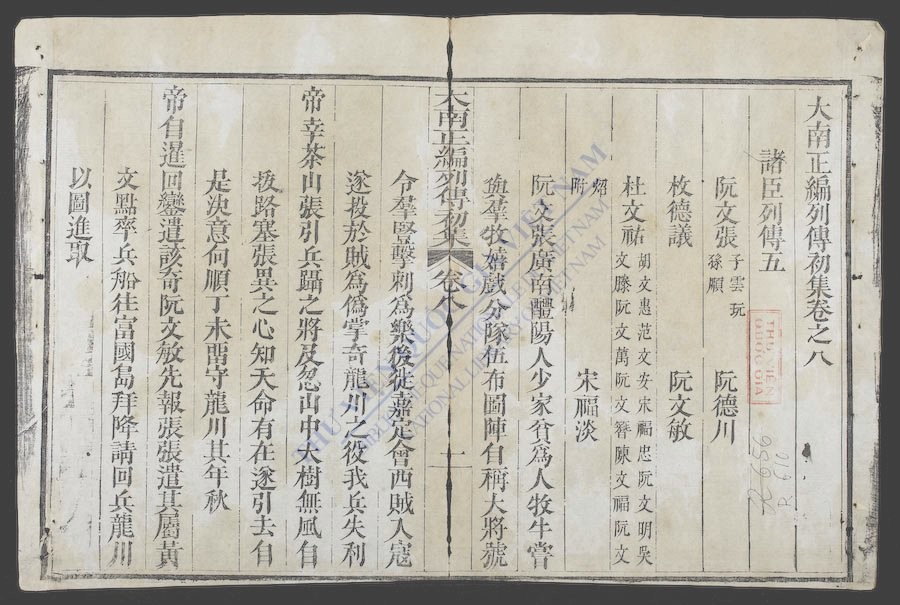 大南正編列傳初集卷之八
諸臣列傳五
阮文張 子雲 玩 孫順 阮德川
枚德議 阮文敏
杜文祐 胡文惠范文安宋福忠阮文明吳
文滕阮文萬阮文簪陳文福阮文
炤附 宋福淡
阮文張廣南醴陽人少家貧為人牧牛嘗
與羣牧嬉戲分隊伍布圖陣自稱大將號
大南正編列傳初集 卷八 一
令羣豎擊刺為樂後徙嘉定會西賊入寇
遂投於賊為偽掌奇龍川之役我兵失利
帝幸茶山張引兵躡之將及忽山中大樹無風自
拔路塞張異之心知天命有在遂引去自
是決意向順丁未畱守龍川其年秋
帝自暹回鑾遣該奇阮文敏先報張張遣其屬黃
文點率兵船往富國島拜降請回兵龍川
以圖進取
THƯ VIỆN QUỐC GIA VIỆT NAM
BIBLIOTHEQUE NATIONALE DU VIETNAM
NATIONAL LIBRARY OF VIETNAM
THƯ VIỆN
QUỐC GIA
R 656
R 610